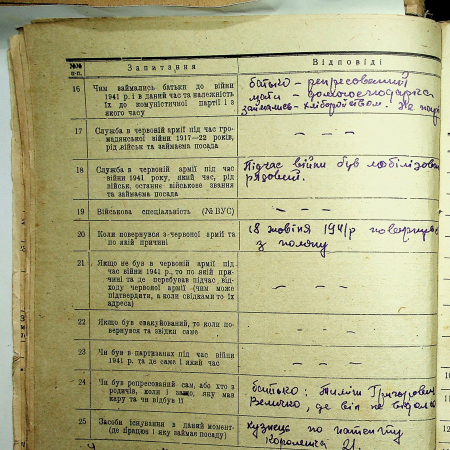 №№ п-п.
Запитання
Відповіді
16
Чим займались батьки до війни
1941 р. і в даний час та належність
їх до комуністичної партії і з
якого часу
батько – репресований
мати – домогосподарка
займались – хліборобством.
17
Служба в червоній армії під час гро-
мадянської війни 1917—22 років,
рід військ та займаєма посада
— — —
18
Служба в червоній армії під час
війни 1941 року, який час, рід
військ, останнє військове звання
та займаєма посада
Підчас війни був мобілізован
рядовий.
19
Військова спеціяльність (№ ВУС)
— — —
20
Коли повернувся з червоної армії та
по якій причині
18 жовтня 1941 р повернувся
з полону
21
Якщо не був в червоній армії під
час війни 1941 р., то по якій при-
чині та де перебував підчас від-
ходу червоної армії (чим може
підтвердити, а коли свідками то їх
адреса)
— — —
22
Якщо був евакуйований, то коли по-
вернувся та звідки саме
— — —
23
Чи був в партизанах під час війни
1941 р. та де саме і який час
— — —
24
Чи був репресований сам, або хто з
родичів, коли і защо, яку мав
кару та чи відбув її
батько: Григорович
Величко, де він не відомо
25
Засоби існування в даний момент
(де працює і яку займає посаду)
кузнець по патенту
Короленка 21.